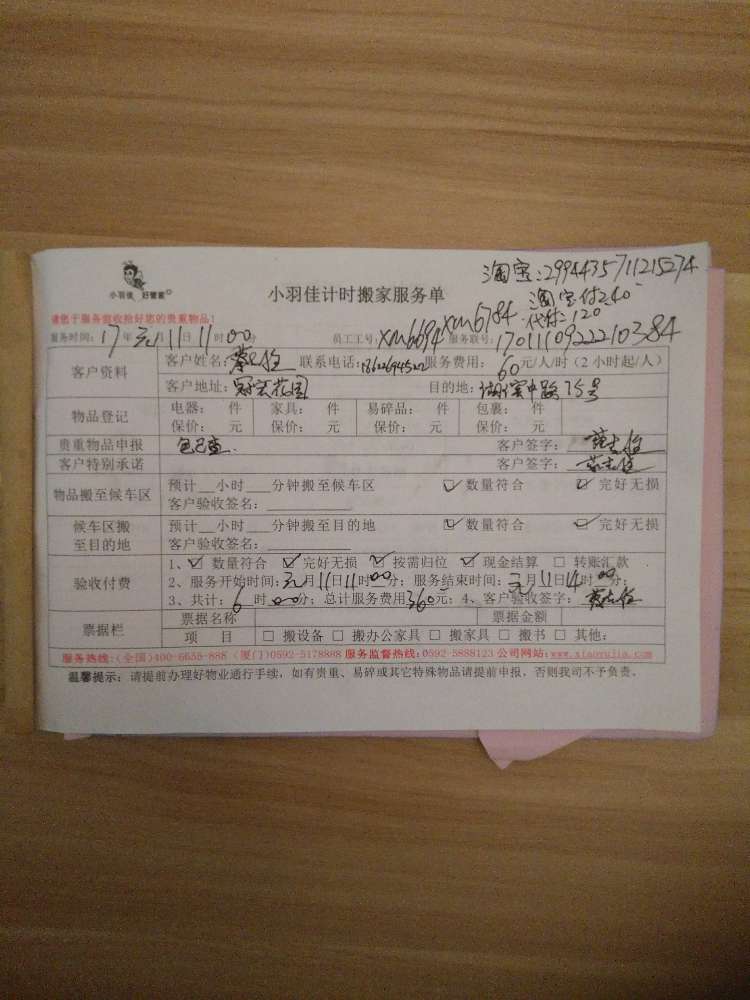 淘宝:2994435711215274
小羽佳 好管家
小羽佳计时搬家服务单
淘宝付240
代付:120
请您于服务前收拾好您的贵重物品!
服务时间: 17年元月11日11时00分 员工工号: XM6694 XM6784 服务联号: 1701110922210384
客户资料
客户姓名: 联系电话: 服务费用: 60元/人/时(2小时起/人)
客户地址: 冠宏花园 目的地: 中路75号
物品登记
电器: 件 家具: 件 易碎品: 件 包裹: 件
保价: 元 保价: 元 保价: 元 保价: 元
贵重物品申报 包已查 客户签字:
客户特别承诺 客户签字:
物品搬至候车区
预计__小时___分钟搬至候车区 ☑ 数量符合 ☑ 完好无损
客户验收签名:
候车区搬至目的地
预计__小时___分钟搬至目的地 ☑ 数量符合 ☑ 完好无损
客户验收签名:
验收付费
1、☑ 数量符合 ☑ 完好无损 ☑ 按需归位 ☑ 现金结算 □ 转账汇款
2、服务开始时间:元月11日11时00分; 服务结束时间:元月11日14时00分;
3、共计:6时00分; 总计服务费用360元; 4、客户验收签字:
票据栏
票据名称 票据金额
项 目 □ 搬设备 □ 搬办公家具 □ 搬家具 □ 搬书 □ 其他:
服务热线:(全国)400-6655-888 (厦门)0592-5178888 服务监督热线:0592-5888123 公司网站:www.xiaoyujia.com
温馨提示: 请提前办理好物业通行手续, 如有贵重、易碎或其它特殊物品请提前申报, 否则我司不予负责。